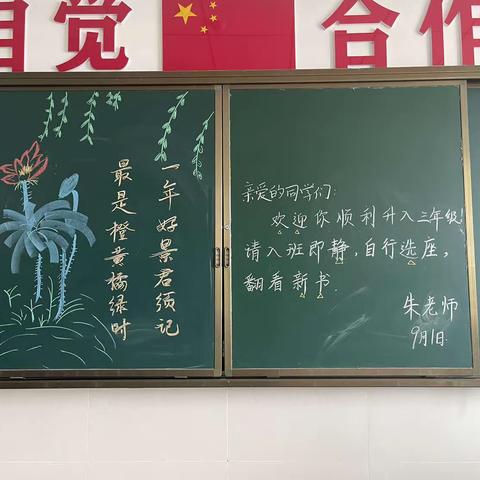 自觉 合作
一年好景君须记
最是橙黄橘绿时
亲爱的同学们:
欢迎你顺利升入三年级!
请入班即静,自行选座,
翻看新书.
朱老师
9月1日